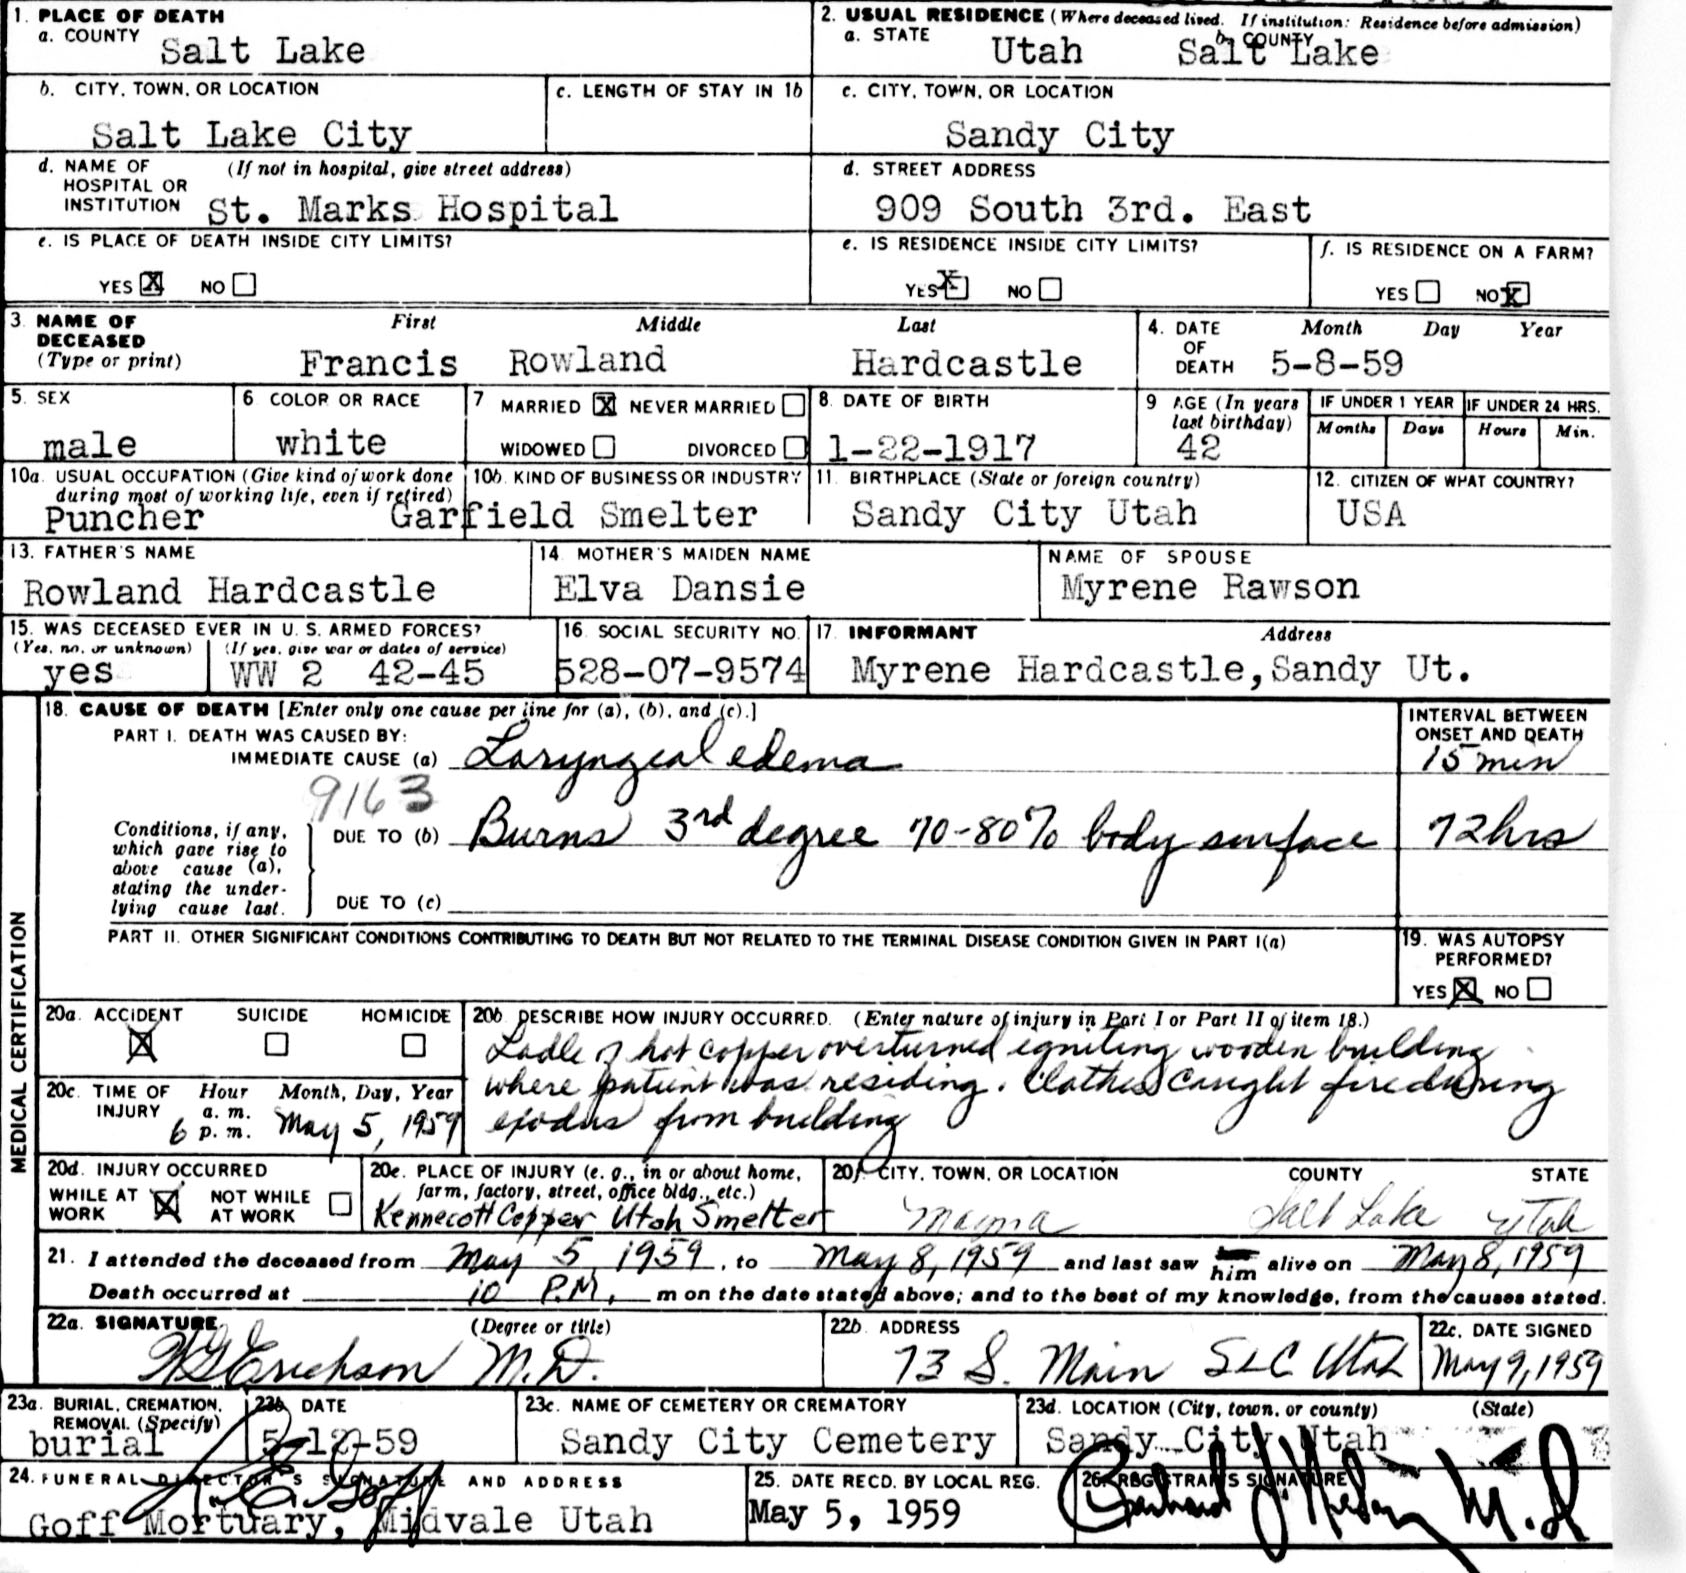 1. PLACE OF DEATH
a. COUNTY Salt Lake
2. USUAL RESIDENCE (Where deceased lived. If institution: Residence before admission)
a. STATE Utah b. COUNTY Salt Lake
b. CITY, TOWN, OR LOCATION Salt Lake City
c. LENGTH OF STAY IN 1b
c. CITY, TOWN, OR LOCATION Sandy City
d. NAME OF HOSPITAL OR INSTITUTION (If not in hospital, give street address) St. Marks Hospital
d. STREET ADDRESS 909 South 3rd. East
e. IS PLACE OF DEATH INSIDE CITY LIMITS?
YES X NO
e. IS RESIDENCE INSIDE CITY LIMITS?
YES X NO
f. IS RESIDENCE ON A FARM?
YES NO X
3. NAME OF DECEASED (Type or print) First Middle Last
Francis Rowland Hardcastle
4. DATE OF DEATH Month Day Year
5-8-59
5. SEX male
6 COLOR OR RACE white
7 MARRIED X NEVER MARRIED
WIDOWED DIVORCED
8. DATE OF BIRTH 1-22-1917
9 AGE (In years last birthday) 42
IF UNDER 1 YEAR Months Days
IF UNDER 24 HRS. Hours Min.
10a. USUAL OCCUPATION (Give kind of work done during most of working life, even if retired) Puncher
10b. KIND OF BUSINESS OR INDUSTRY Garfield Smelter
11. BIRTHPLACE (State or foreign country) Sandy City Utah
12. CITIZEN OF WHAT COUNTRY? USA
13. FATHER'S NAME Rowland Hardcastle
14. MOTHER'S MAIDEN NAME Elva Dansie
NAME OF SPOUSE Myrene Rawson
15. WAS DECEASED EVER IN U. S. ARMED FORCES?
(Yes, no, or unknown) yes (If yes, give war or dates of service) WW 2 42-45
16. SOCIAL SECURITY NO. 528-07-9574
17. INFORMANT Address
Myrene Hardcastle, Sandy Ut.
MEDICAL CERTIFICATION
18. CAUSE OF DEATH [Enter only one cause per line for (a), (b), and (c).]
INTERVAL BETWEEN ONSET AND DEATH
PART I. DEATH WAS CAUSED BY:
IMMEDIATE CAUSE (a) Laryngeal edema 15 min
9163
Conditions, if any, which gave rise to above cause (a), stating the underlying cause last.
DUE TO (b) Burns 3rd degree 70-80% body surface 72 hrs
DUE TO (c)
PART II. OTHER SIGNIFICANT CONDITIONS CONTRIBUTING TO DEATH BUT NOT RELATED TO THE TERMINAL DISEASE CONDITION GIVEN IN PART I(a)
19. WAS AUTOPSY PERFORMED?
YES X NO
20a. ACCIDENT X SUICIDE HOMICIDE
20b DESCRIBE HOW INJURY OCCURRED. (Enter nature of injury in Part I or Part II of item 18.)
Ladle of hot copper overturned igniting wooden building
where patient was residing. Clothes caught fire during
exodus from building
20c. TIME OF INJURY Hour Month, Day, Year
a. m.
6 p. m. May 5, 1959
20d. INJURY OCCURRED
WHILE AT WORK X NOT WHILE AT WORK
20e. PLACE OF INJURY (e. g., in or about home, farm, factory, street, office bldg., etc.)
Kennecott Copper Utah Smelter
20f. CITY, TOWN, OR LOCATION COUNTY STATE
Magna Salt Lake Utah
21. I attended the deceased from May 5, 1959, to May 8, 1959 and last saw him alive on May 8, 1959
Death occurred at 10 P.M. m on the date stated above; and to the best of my knowledge, from the causes stated.
22a. SIGNATURE (Degree or title)
Erickson M.D.
22b ADDRESS 73 S. Main SLC Utah
22c. DATE SIGNED May 9, 1959
23a. BURIAL, CREMATION, REMOVAL (Specify) burial
23b DATE 5-12-59
23c. NAME OF CEMETERY OR CREMATORY Sandy City Cemetery
23d. LOCATION (City, town, or county) (State)
Sandy City Utah
24. FUNERAL DIRECTOR'S SIGNATURE AND ADDRESS
Goff Mortuary, Midvale Utah
25. DATE RECD. BY LOCAL REG. May 5, 1959
26. REGISTRAR'S SIGNATURE
M.D.